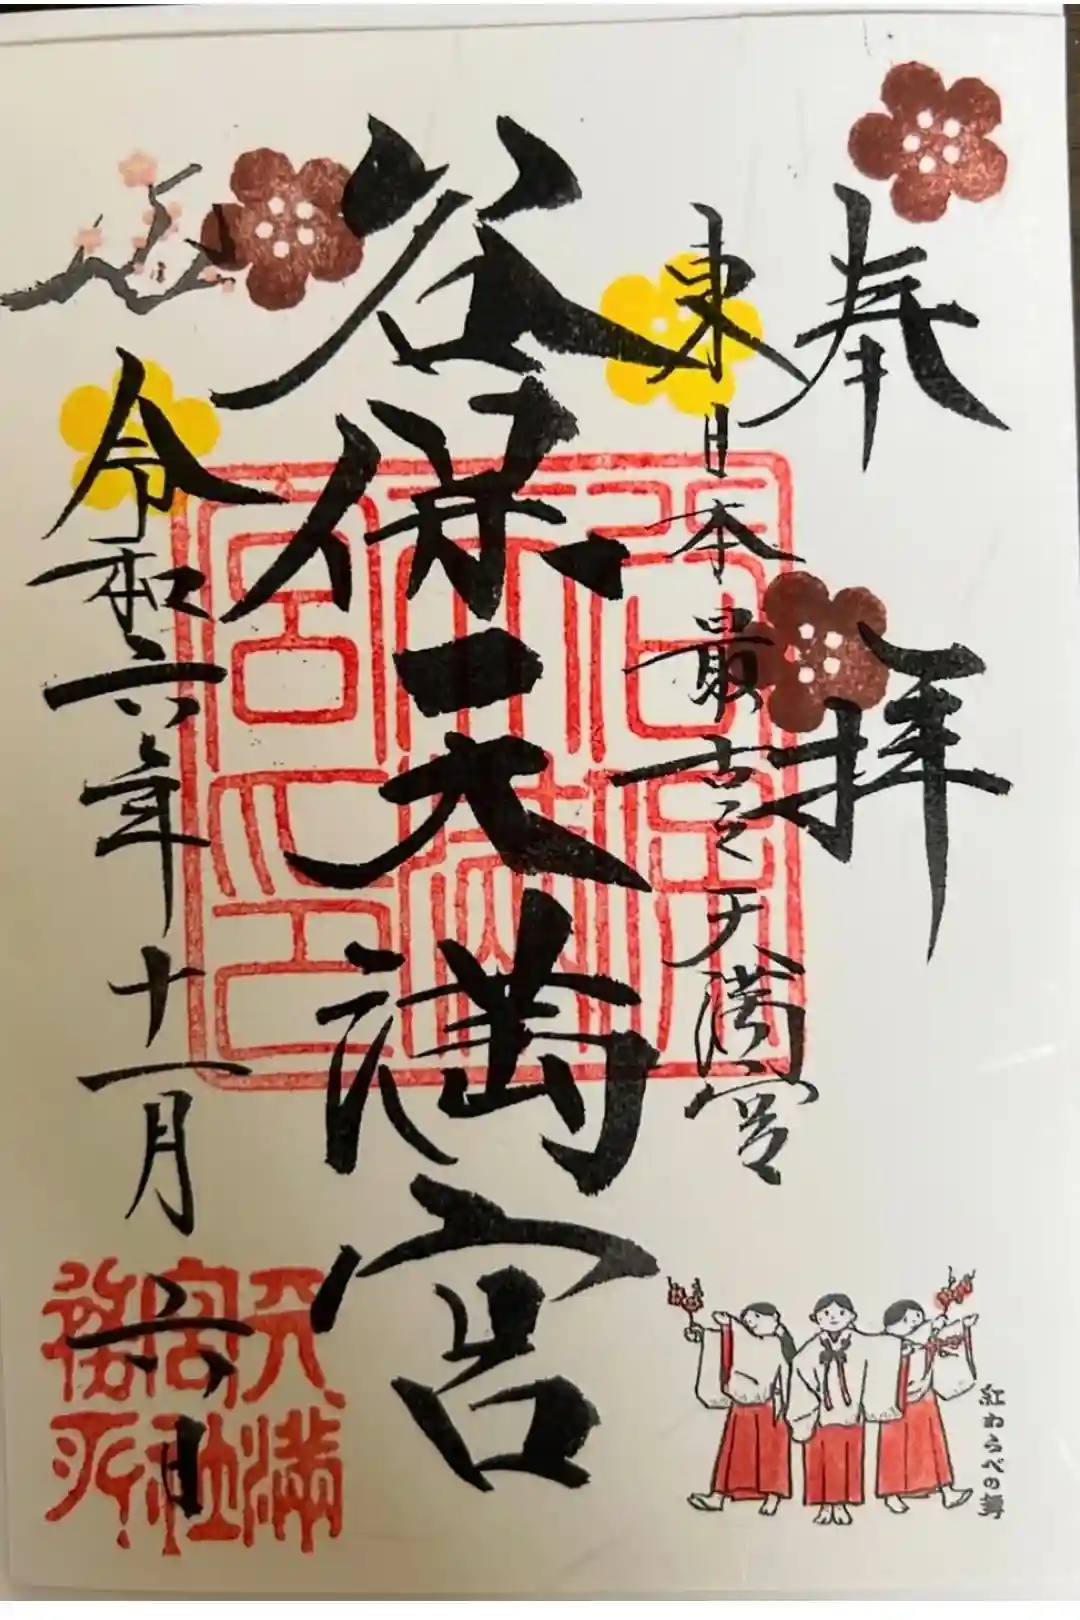 奉拝
東日本最古之天満宮
谷保天満宮
令和六年十一月六日
天満
宮社
務所
紅わらべの舞